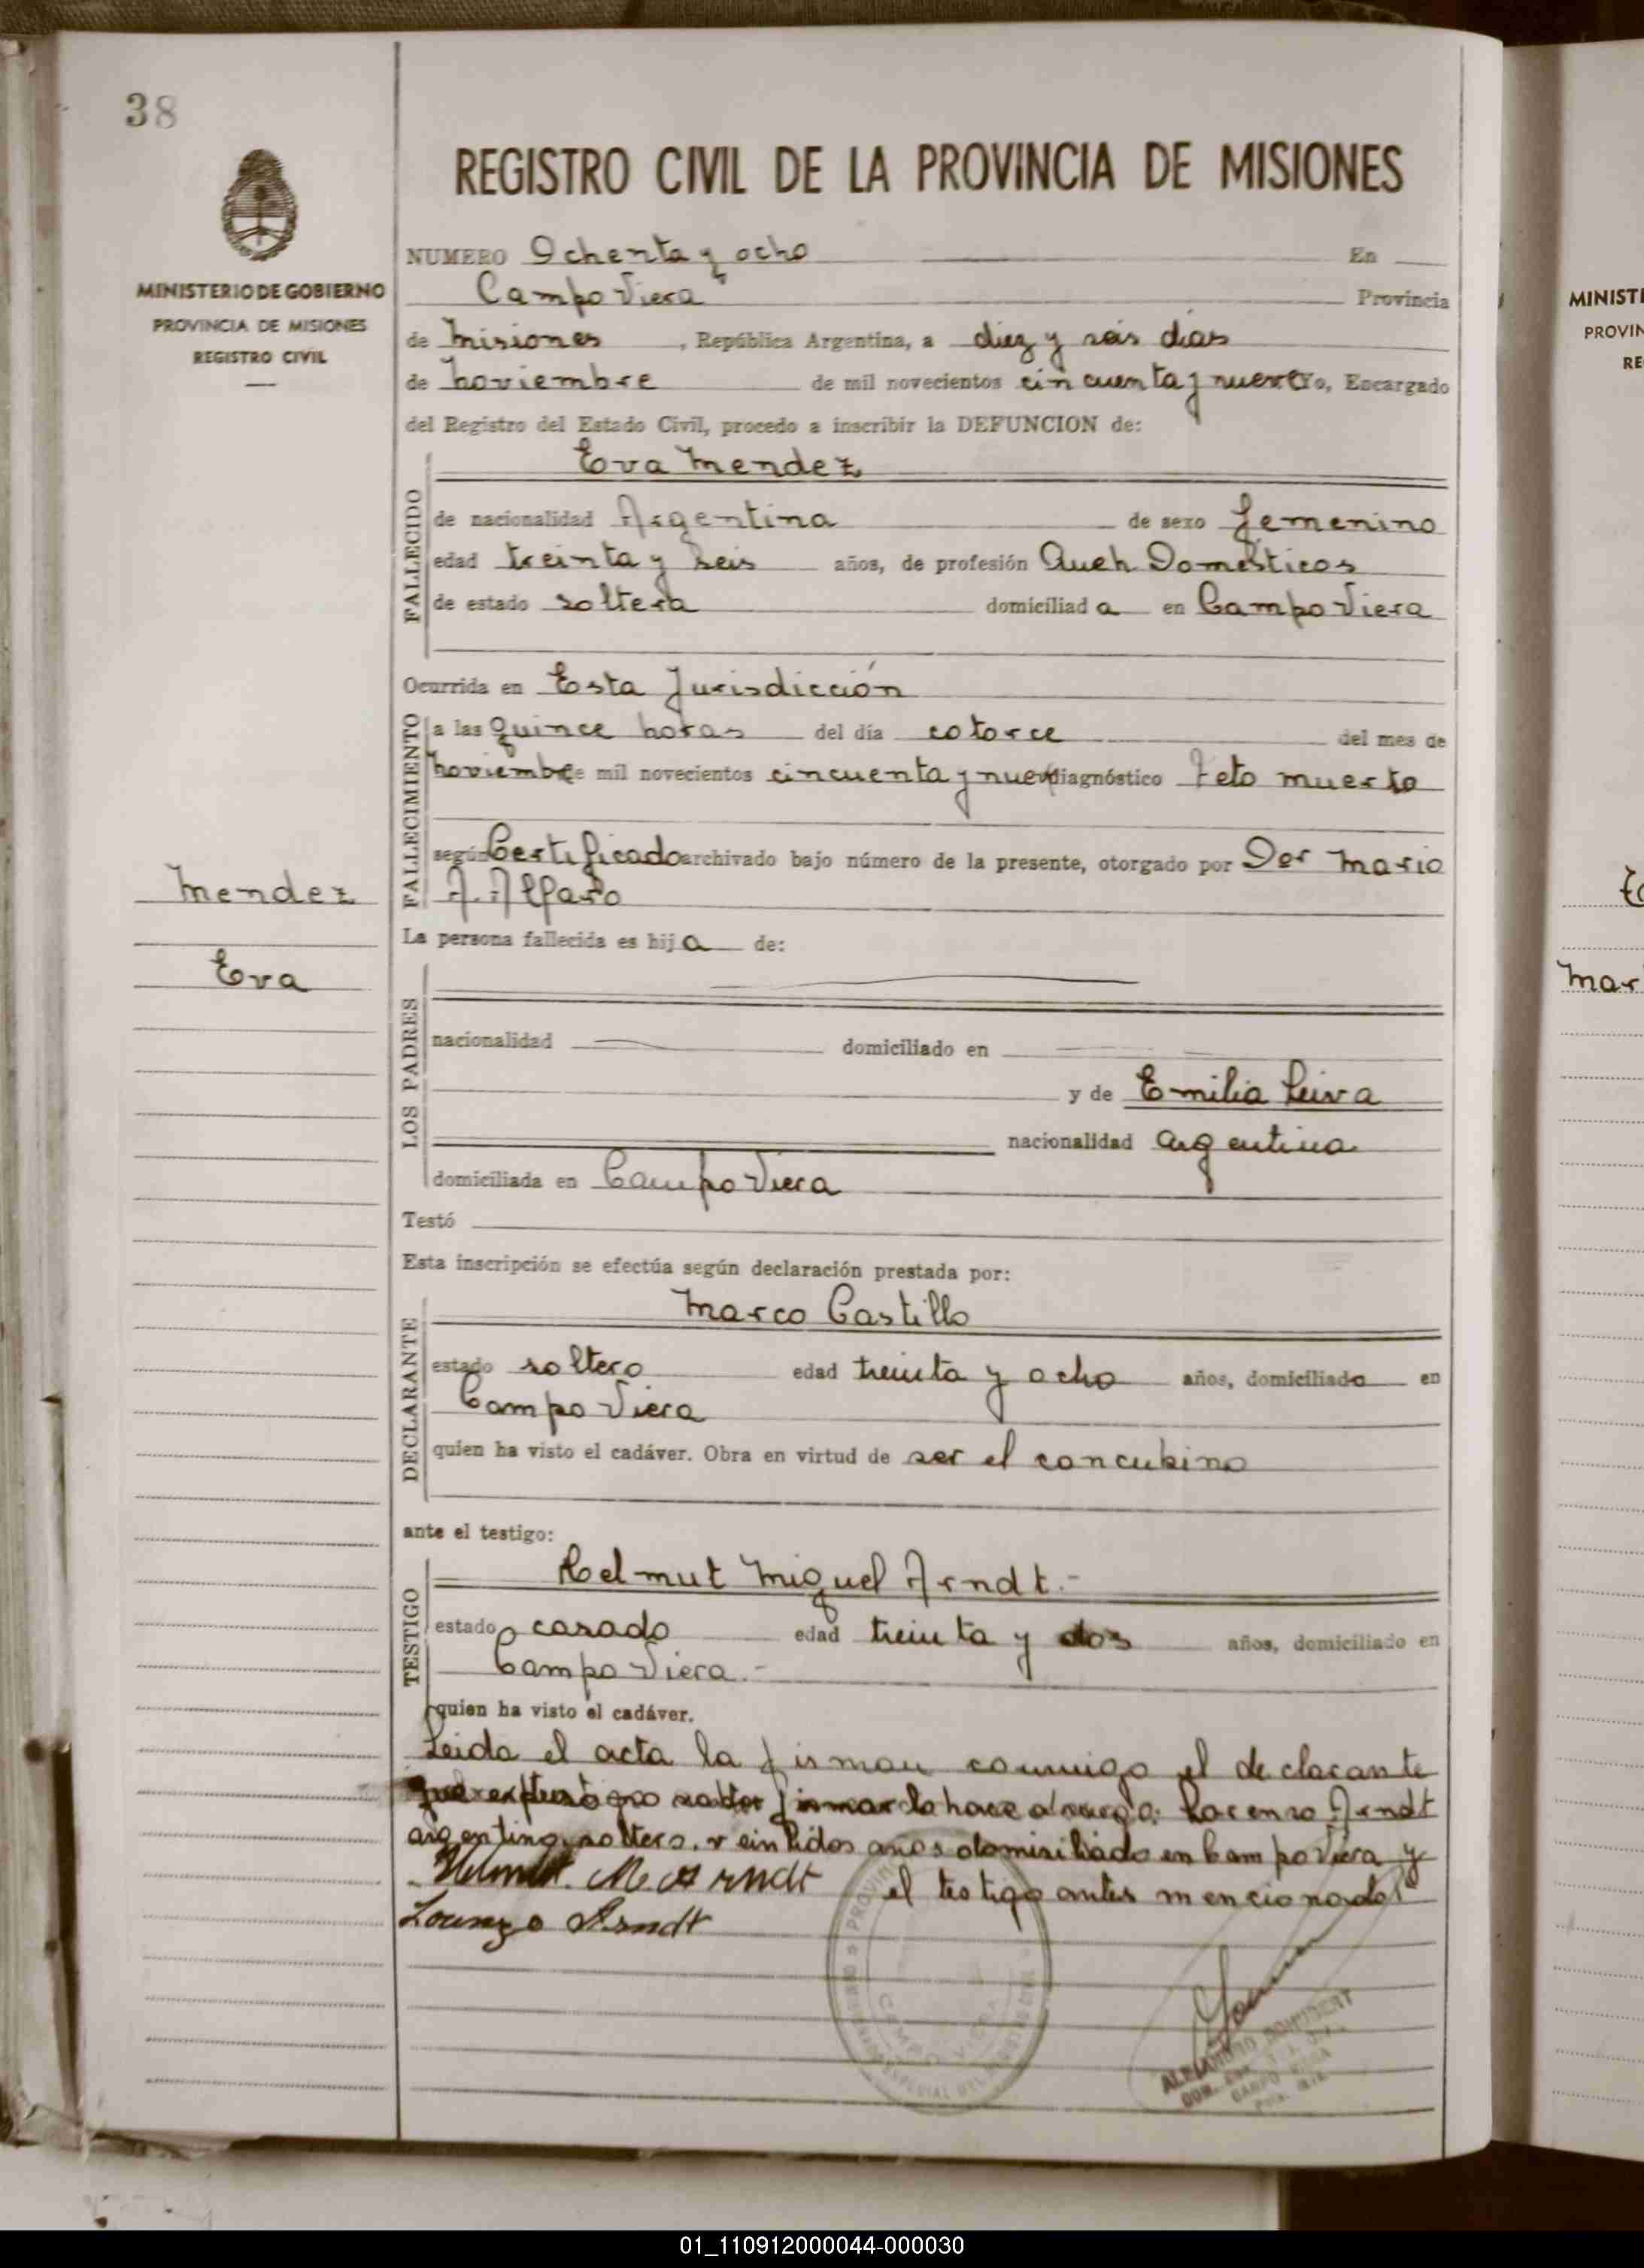 38
REGISTRO CIVIL DE LA PROVINCIA DE MISIONES
MINISTERIO DE GOBIERNO
PROVINCIA DE MISIONES
REGISTRO CIVIL
NUMERO Ochenta y ocho En
Campo Viera Provincia
de Misiones, República Argentina, a diez y seis dias
de noviembre de mil novecientos cincuenta y nueve Yo, Encargado
del Registro del Estado Civil, procedo a inscribir la DEFUNCION de:
Eva Mendez
FALLECIDO
de nacionalidad Argentina de sexo femenino
edad treinta y seis años, de profesión Queh. Domésticos
de estado soltera domiciliada en Campo Viera
Ocurrida en Esta Jurisdicción
FALLECIMIENTO
a las quince horas del día cotorce del mes de
noviembre mil novecientos cincuenta y nueve diagnóstico Feto muerto
según Certificado archivado bajo número de la presente, otorgado por Dor Mario
A. Alfaro
Mendez
Eva
La persona fallecida es hija de:
LOS PADRES
nacionalidad domiciliado en
y de Emilia Leiva
nacionalidad argentina
domiciliada en Campo Viera
Testó
Esta inscripción se efectúa según declaración prestada por:
Marco Castillo
DECLARANTE
estado soltero edad treinta y ocho años, domiciliado en
Campo Viera
quien ha visto el cadáver. Obra en virtud de ser el concubino
ante el testigo:
Helmut Miguel Arndt.-
TESTIGO
estado casado edad treinta y dos años, domiciliado en
Campo Viera.-
quien ha visto el cadáver.
Leida el acta la firman conmigo el declarante
que expresó no saber firmar lo hace a ruego: Lorenso Arndt
argentino, soltero, veintidos años domiciliado en Campo Viera y
el testigo antes mencionado
Helmut. M. Arndt
Lorenzo Arndt
PROVINCIA
CAMPO VIERA
ALEJANDRO
CAMPO VIERA
MINISTE
PROVIN
RE
Mar
01_110912000044-000030